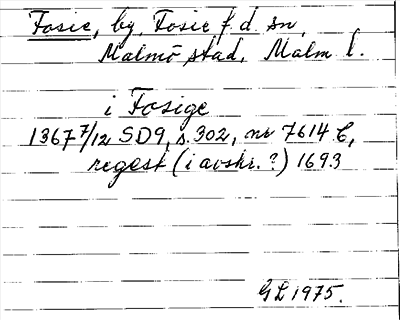 Fosie, by, Fosie f.d. sn,
Malmö stad, Malm l.
i Fosige
1367 7/12 SD9, s. 302, nr 7614 C,
regest (i avskr.?) 1693
GL 1975.